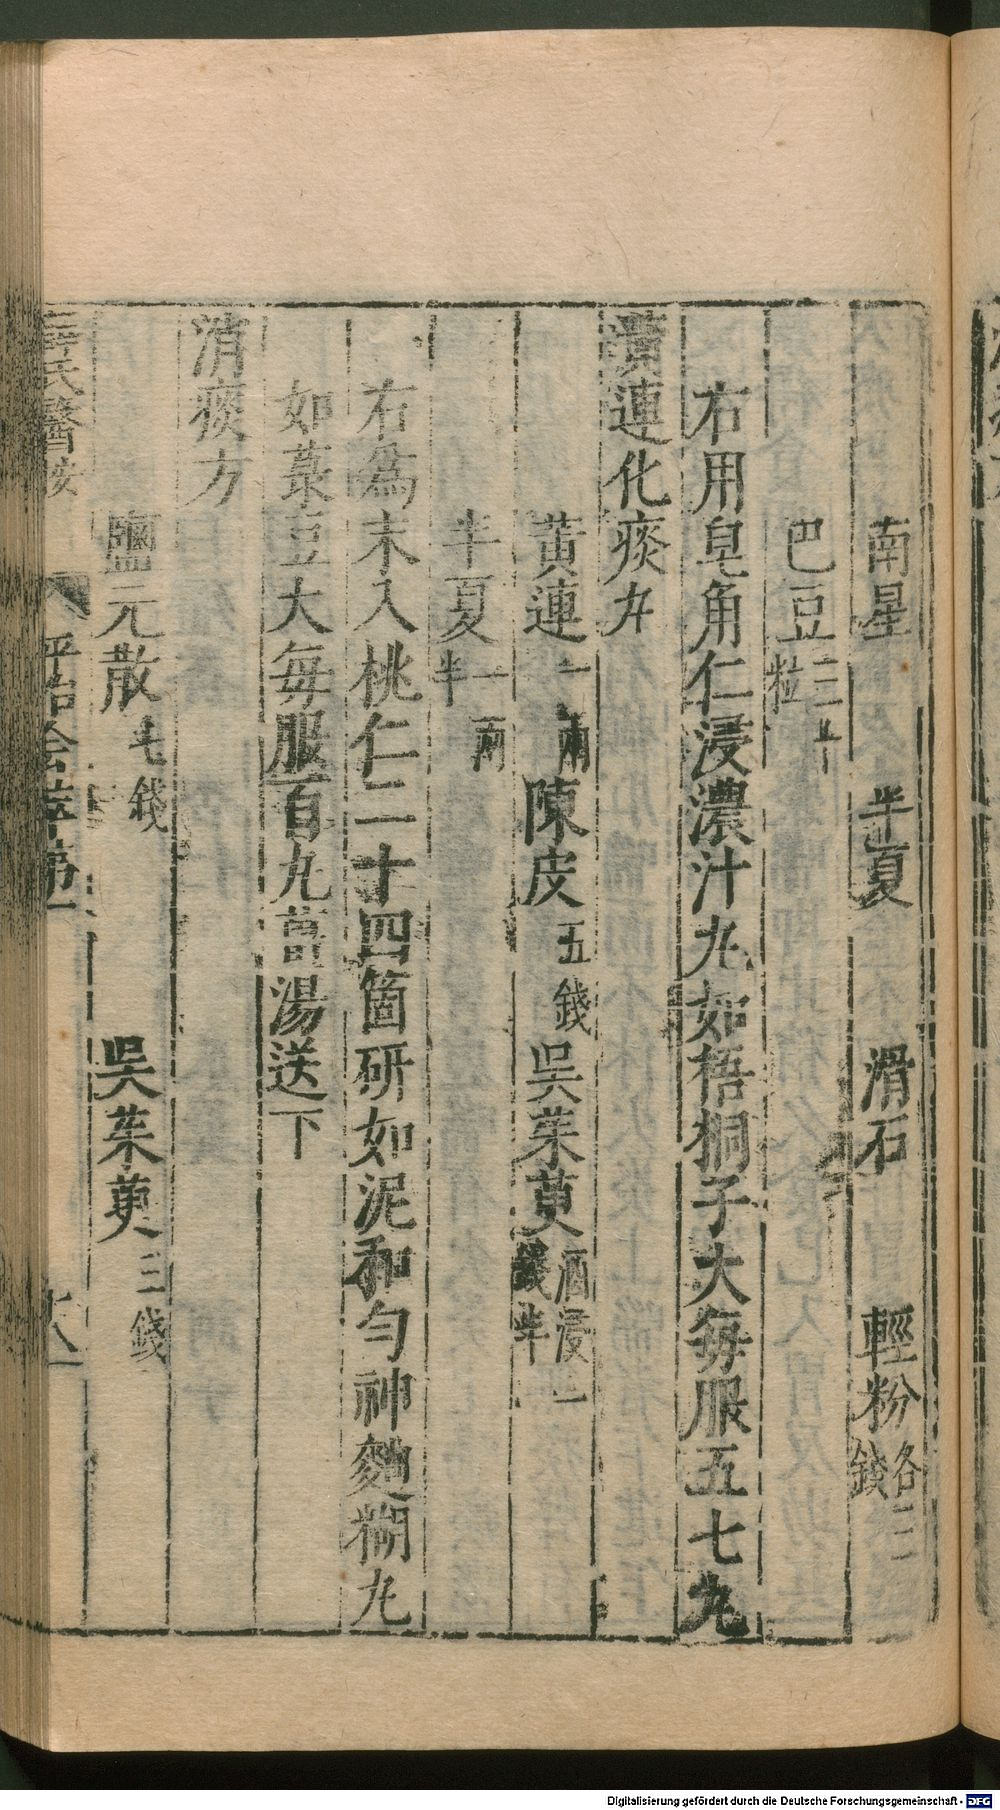 南星 半夏 滑石 輕粉各三錢
巴豆三十粒
右用皂角仁浸濃汁丸如梧桐子大每服五七丸
黃連化痰丸
黃連一兩 陳皮五錢 吳茱萸酒浸一錢半
半夏一兩半
右為末入桃仁二十四箇研如泥和勻神麯糊丸
如菉豆大每服百丸薑湯送下
消痰方
鹽元散七錢 吳茱萸三錢
薛氏醫按 平治會萃第一 十八
Digitalisierung gefördert durch die Deutsche Forschungsgemeinschaft - DFG